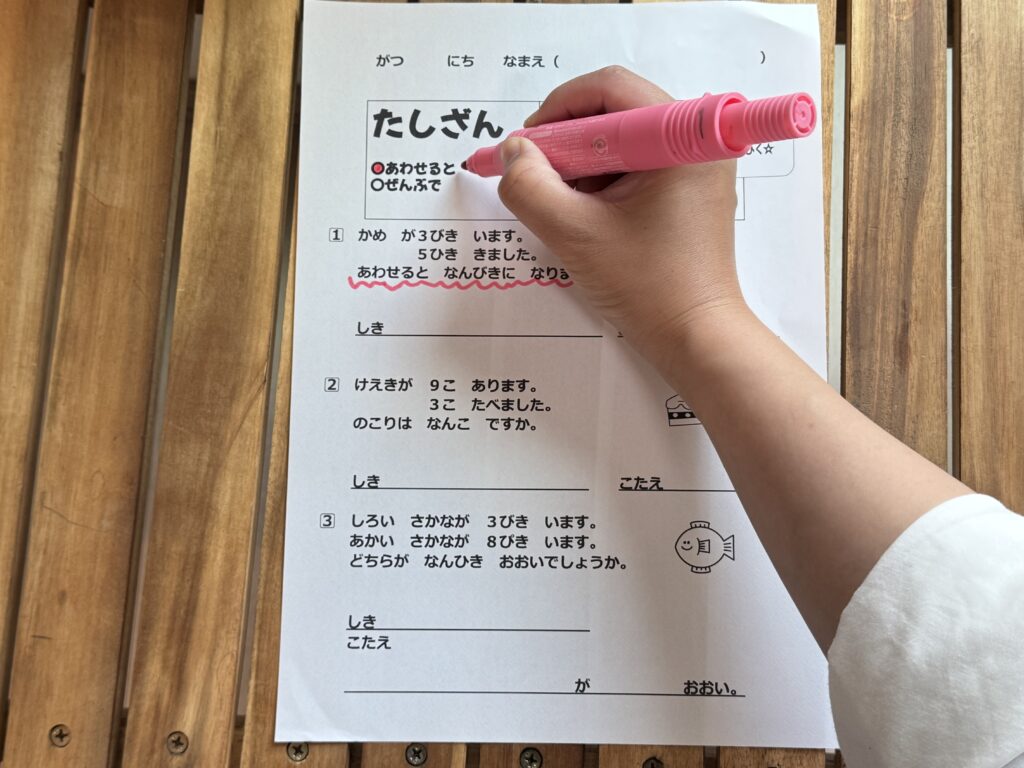 がつ　にち　なまえ（　）
たしざん
●あわせると
○ぜんぶで
く☆
1 かめ　が３びき　います。
５ひき　きました。
あわせると　なんびきに　なりま
しき
2 けえきが　９こ　あります。
３こ　たべました。
のこりは　なんこ　ですか。
しき　こたえ
3 しろい　さかなが　３びき　います。
あかい　さかなが　８びき　います。
どちらが　なんひき　おおいでしょうか。
しき
こたえ
が　おおい。